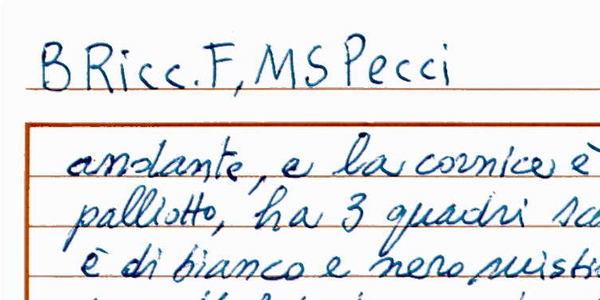 B Ricc. F, MS Pecci
andante, e la cornice è
palliotto, ha 3 quadri
è di bianco e nero